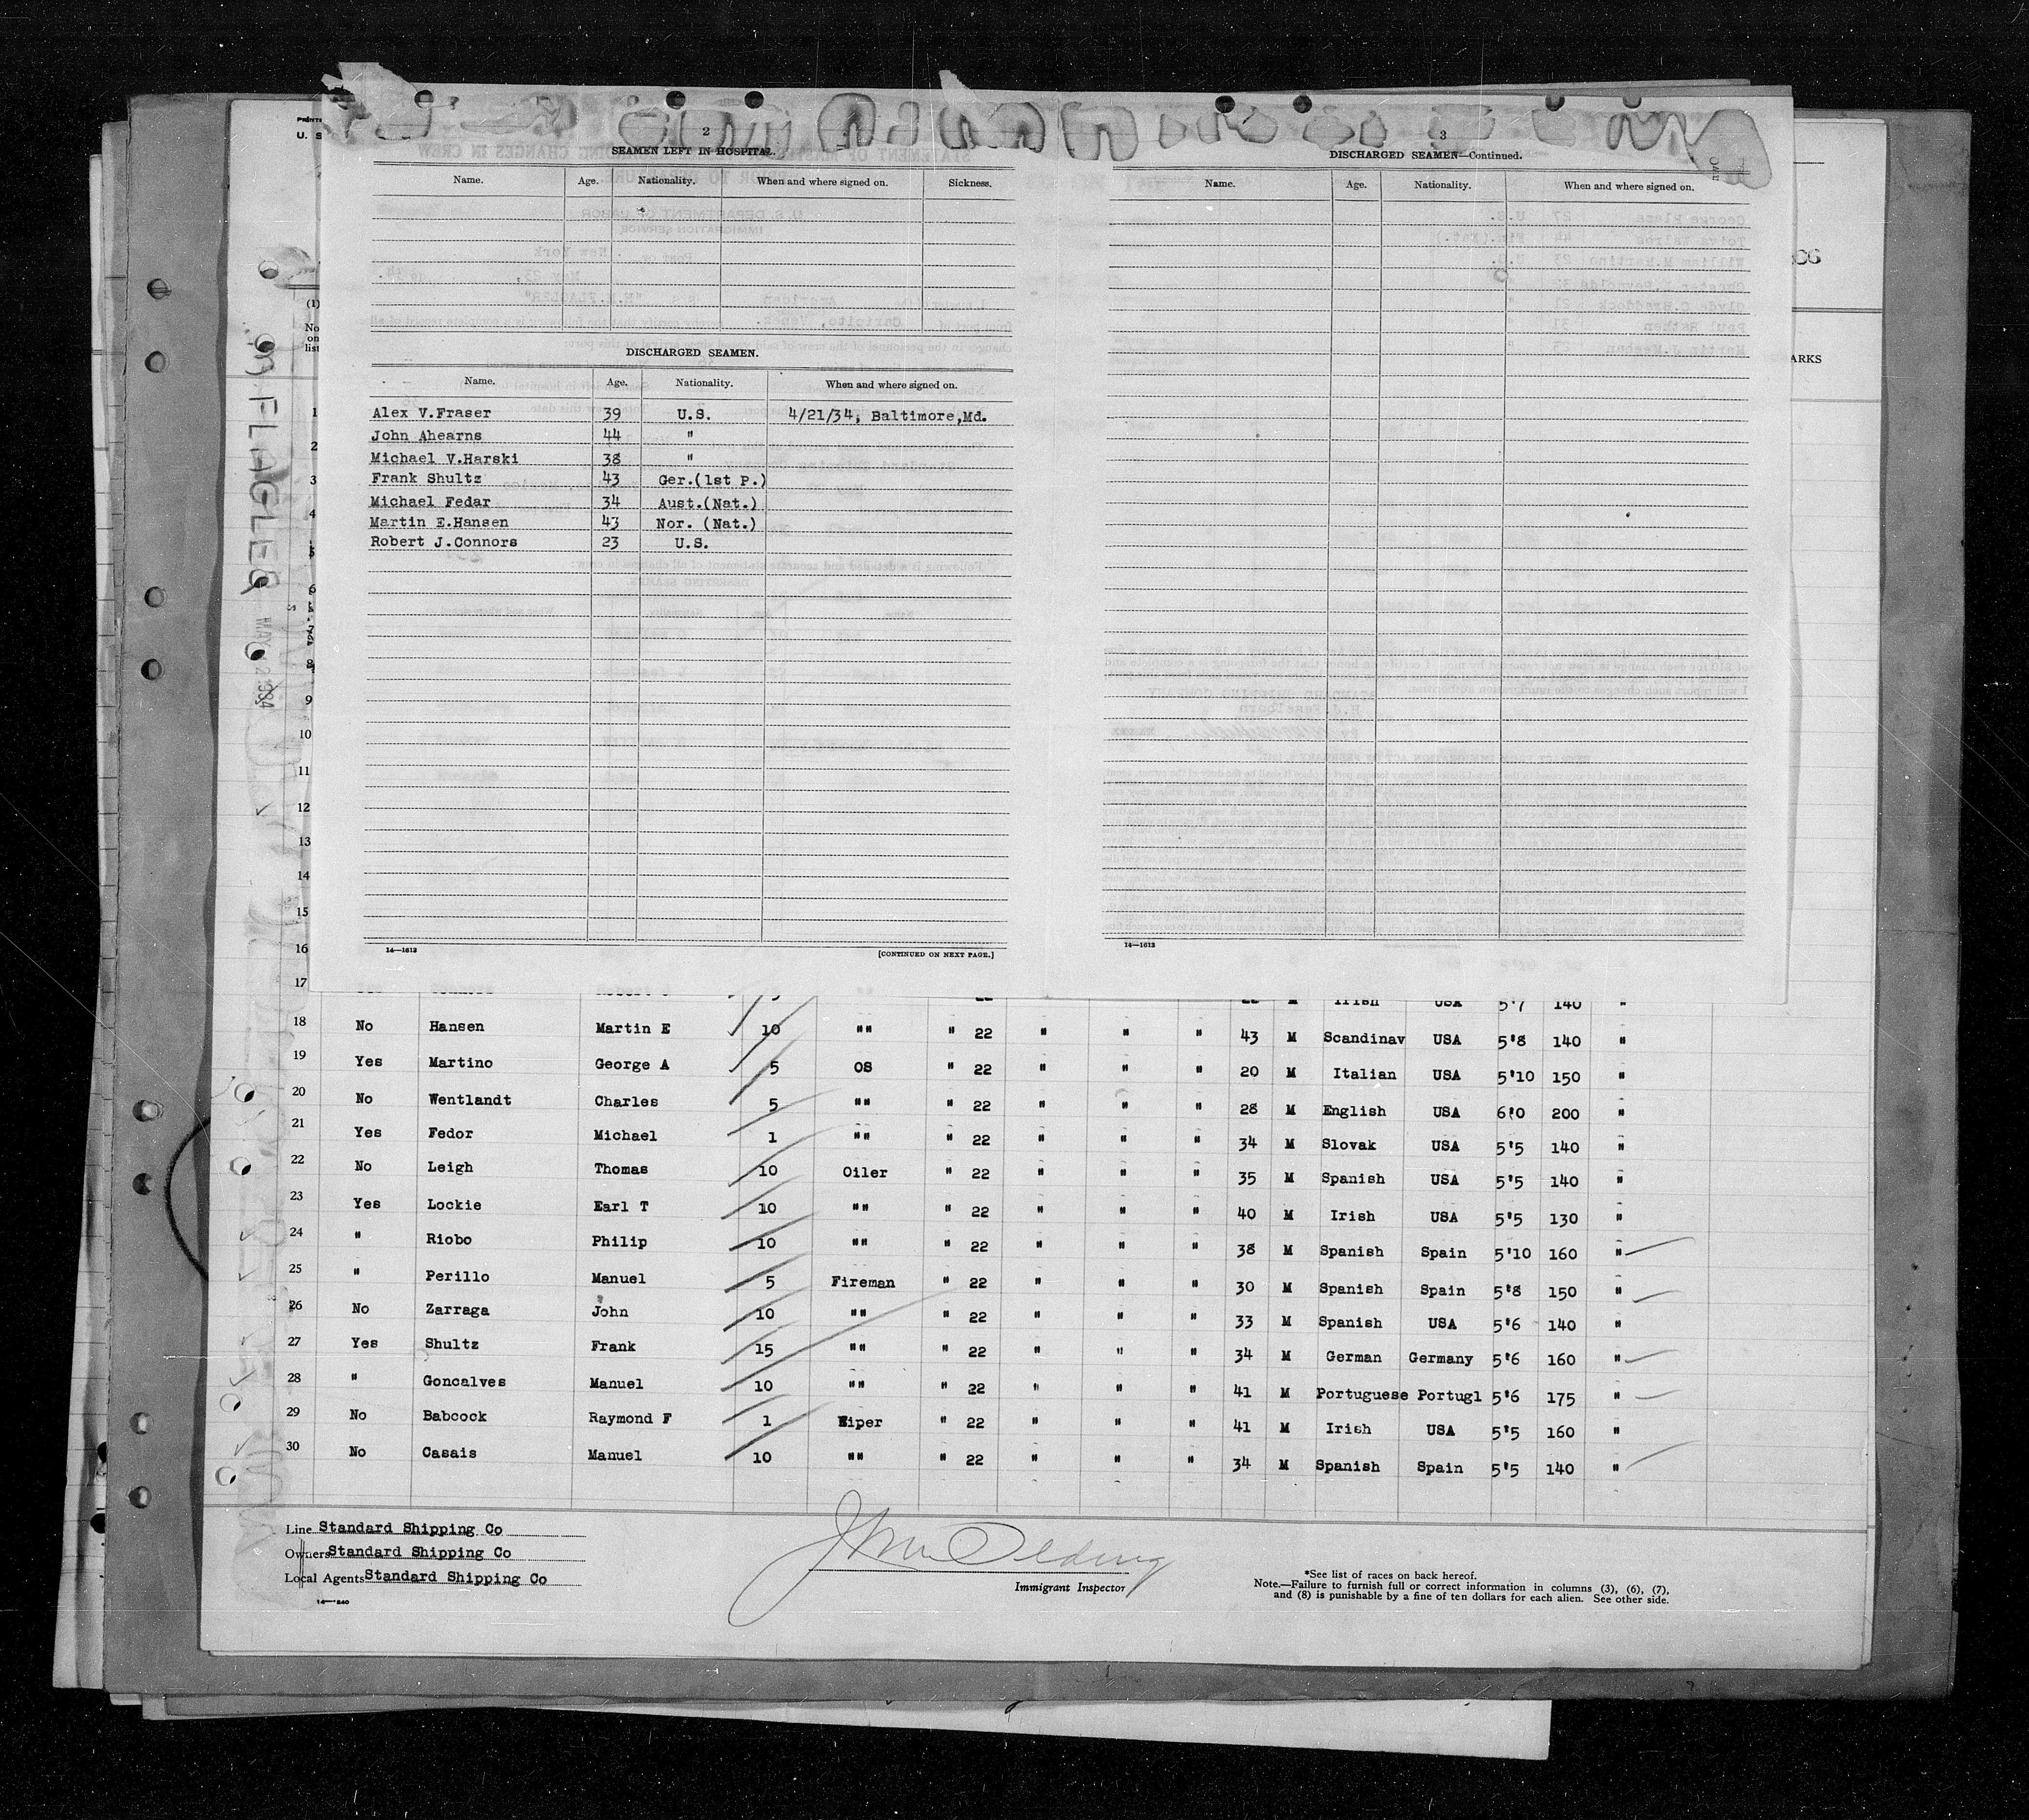 2
SEAMEN LEFT IN HOSPITAL.
Name. Age. Nationality. When and where signed on. Sickness.
DISCHARGED SEAMEN.
Name. Age. Nationality. When and where signed on.
Alex V.Fraser 39 U.S. 4/21/34, Baltimore,Md.
John Ahearns 44 "
Michael V.Harski 38 "
Frank Shultz 43 Ger.(1st P.)
Michael Fedar 34 Aust.(Nat.)
Martin E.Hansen 43 Nor. (Nat.)
Robert J.Connors 23 U.S.
14—1613 [CONTINUED ON NEXT PAGE.]
3
DISCHARGED SEAMEN—Continued.
Name. Age. Nationality. When and where signed on.
14—1613
U. S
(1)
No
on
list
ARKS
FLAGLER
1
2
3
4
5
6
7
8
9
10
11
12
13
14
15
16
17 Irish USA 5'7 140 "
18 No Hansen Martin E 10 "" " 22 " " " 43 M Scandinav USA 5'8 140 "
19 Yes Martino George A 5 OS " 22 " " " 20 M Italian USA 5'10 150 "
20 No Wentlandt Charles 5 "" " 22 " " " 28 M English USA 6'0 200 "
21 Yes Fedor Michael 1 "" " 22 " " " 34 M Slovak USA 5'5 140 "
22 No Leigh Thomas 10 Oiler " 22 " " " 35 M Spanish USA 5'5 140 "
23 Yes Lockie Earl T 10 "" " 22 " " " 40 M Irish USA 5'5 130 "
24 " Riobo Philip 10 "" " 22 " " " 38 M Spanish Spain 5'10 160 "
25 " Perillo Manuel 5 Fireman " 22 " " " 30 M Spanish Spain 5'8 150 "
26 No Zarraga John 10 "" " 22 " " " 33 M Spanish USA 5'6 140 "
27 Yes Shultz Frank 15 "" " 22 " " " 34 M German Germany 5'6 160 "
28 " Goncalves Manuel 10 "" " 22 " " " 41 M Portuguese Portugl 5'6 175 "
29 No Babcock Raymond F 1 Wiper " 22 " " " 41 M Irish USA 5'5 160 "
30 No Casais Manuel 10 "" " 22 " " " 34 M Spanish Spain 5'5 140 "
Line Standard Shipping Co
Owners Standard Shipping Co
Local Agents Standard Shipping Co
Immigrant Inspector
*See list of races on back hereof.
Note.—Failure to furnish full or correct information in columns (3), (6), (7),
and (8) is punishable by a fine of ten dollars for each alien. See other side.